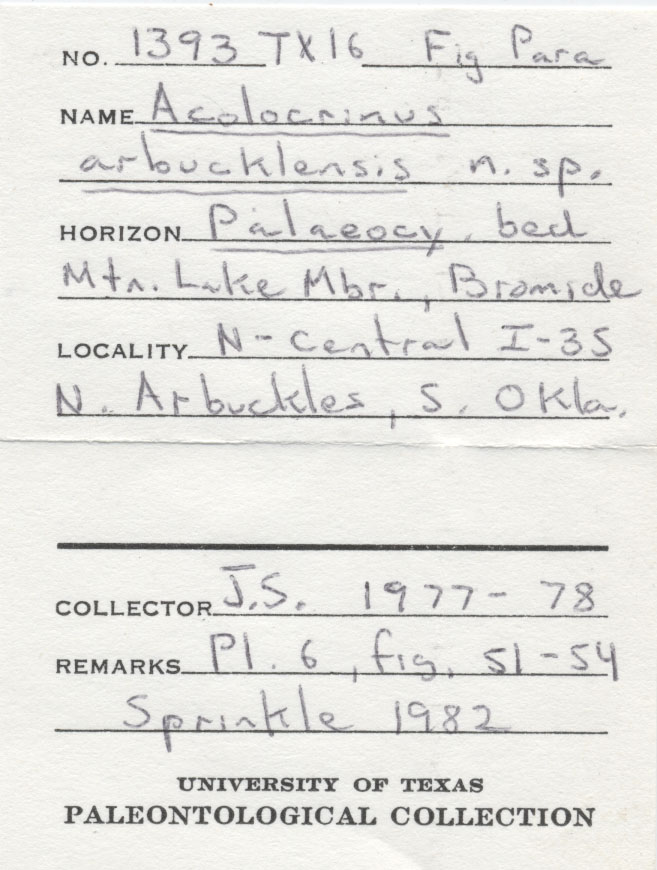 NO. 1393 TX16 Fig Para
NAME Acolocrinus
arbucklensis n. sp.
HORIZON Palaeocy. bed
Mtn. Lake Mbr., Bromide
LOCALITY N-central I-35
N. Arbuckles, S. Okla.
COLLECTOR J.S. 1977-78
REMARKS Pl. 6, fig. 51-54
Sprinkle 1982
UNIVERSITY OF TEXAS
PALEONTOLOGICAL COLLECTION